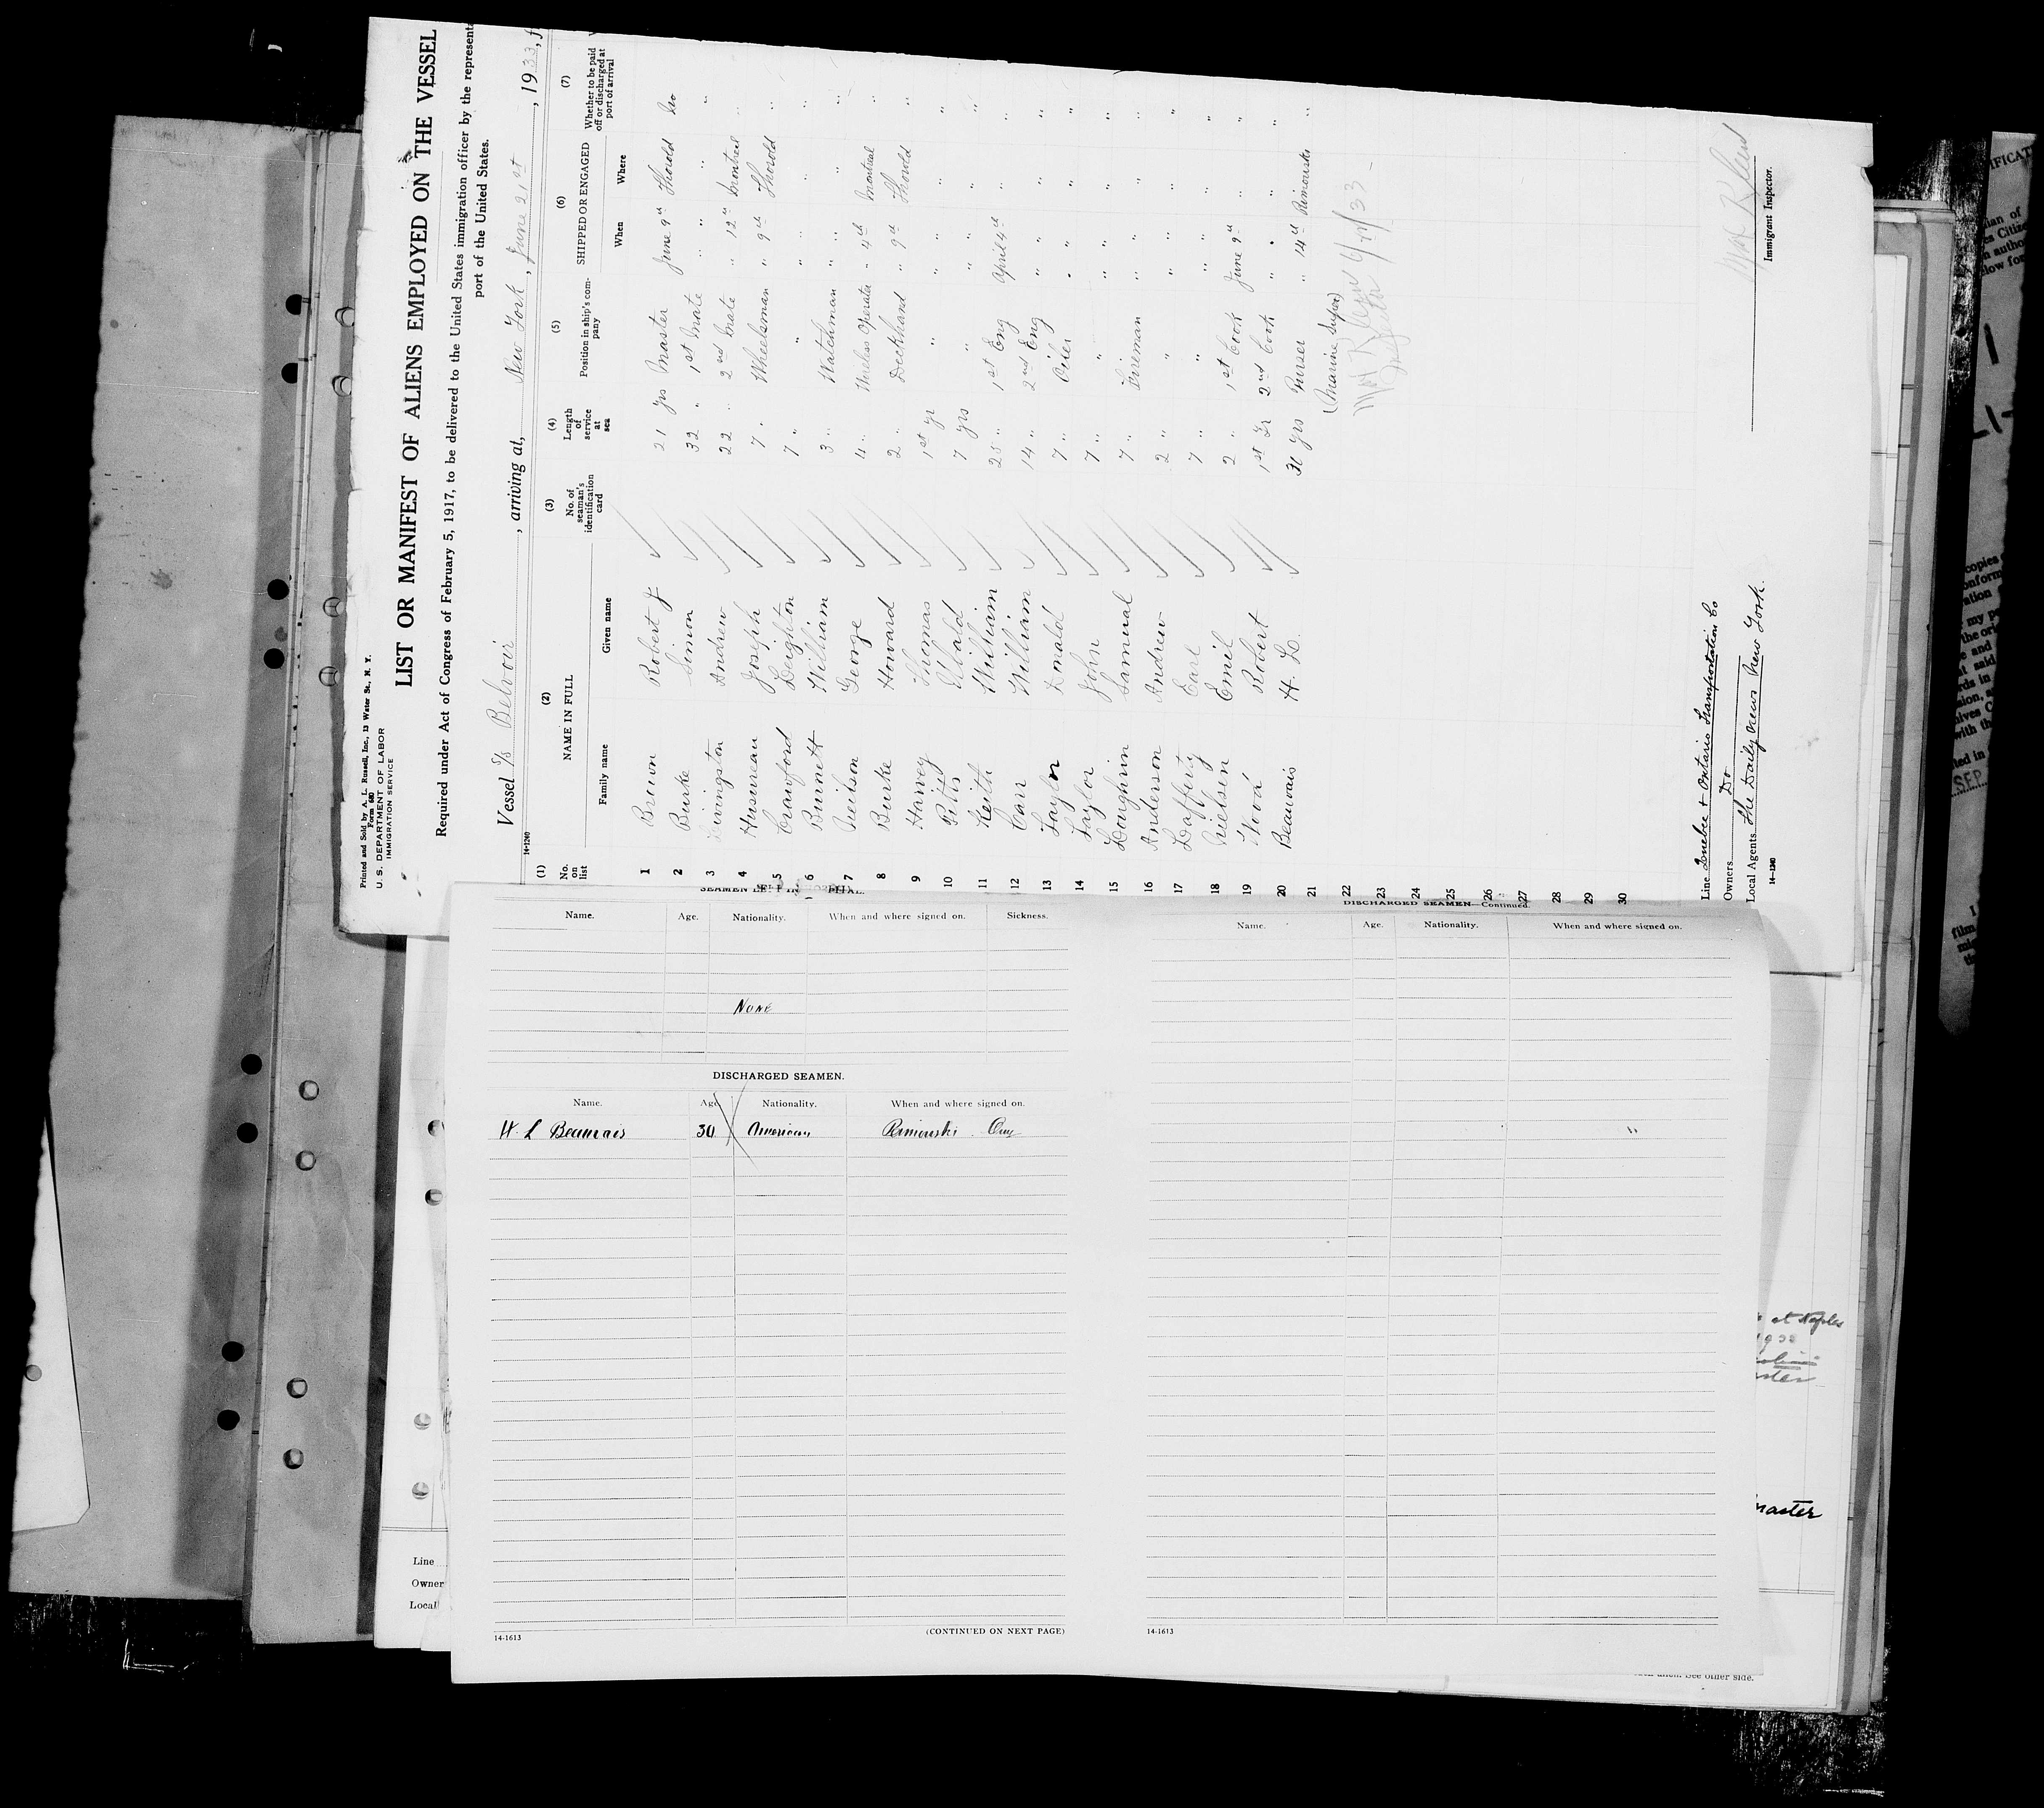 Printed and Sold by A. L. Russell, Inc., 13 Water St., N. Y.
Form 680
U. S. DEPARTMENT OF LABOR
IMMIGRATION SERVICE
LIST OR MANIFEST OF ALIENS EMPLOYED ON THE VESSEL
Required under Act of Congress of February 5, 1917, to be delivered to the United States immigration officer by the represent
port of the United States.
Vessel S/S Belvoir, arriving at, New York, June 21st, 1933, f
14-1240
(1) (2) (3) (4) (5) (6) (7)
No. on list NAME IN FULL No. of seaman's identification card Length of service at sea Position in ship's company SHIPPED OR ENGAGED Whether to be paid off or discharged at port of arrival
Family name Given name When Where
1 Brown Robert J 21 yrs Master June 9th Thorold No
2 Burke Simon 32 " 1st Mate " " " "
3 Livingston Andrew 22 " 2nd Mate " 12th Montreal "
4 Husuneau Joseph 7 " Wheelsman " 9th Thorold "
5 Crawford Leighton 7 " " " " "
6 Burnett William 3 " Watchman " " " "
7 Neilson George 4 " Wireless Operator " 4th Montreal "
8 Burke Howard 2 " Deckhand " 9th Thorold "
9 Harvey Thomas 1st yr " " " "
10 Pitts Ubald 7 yrs " " " "
11 Keith William 25 " 1st Eng April 4th " "
12 Carr William 14 " 2nd Eng " " " "
13 Taylor Donald 7 " Oiler " " "
14 Taylor John 7 " " " " "
15 Loughrin Samual 7 " Fireman " " " "
16 Anderson Andrew 2 " " " " "
17 Lafferty Earl 7 " " " " "
18 Nielsen Emil 2 " 1st Cook June 9th " "
19 Wood Robert 1st Yr 2nd Cook " " " "
20 Beauvais H. L. 30 yrs Purser " 14th Rimouski "
21 (Marine Super)
22
23
24
25
26
27
28
29
30
6/21/33
Line Quebec + Ontario Transportation Co
Owners Do
Local Agents The Daily News New York.
14-1240
Immigrant Inspector.
Name. Age. Nationality. When and where signed on. Sickness.
None
DISCHARGED SEAMEN.
Name. Age Nationality. When and where signed on.
H. L Beauvais 30 American Rimouski Que
14-1613
(CONTINUED ON NEXT PAGE)
DISCHARGED SEAMEN—Continued.
Name. Age. Nationality. When and where signed on.
14-1613
Line
Owner
Local
at Naples
master
See other side.
IFICAT
copies
film
SEP